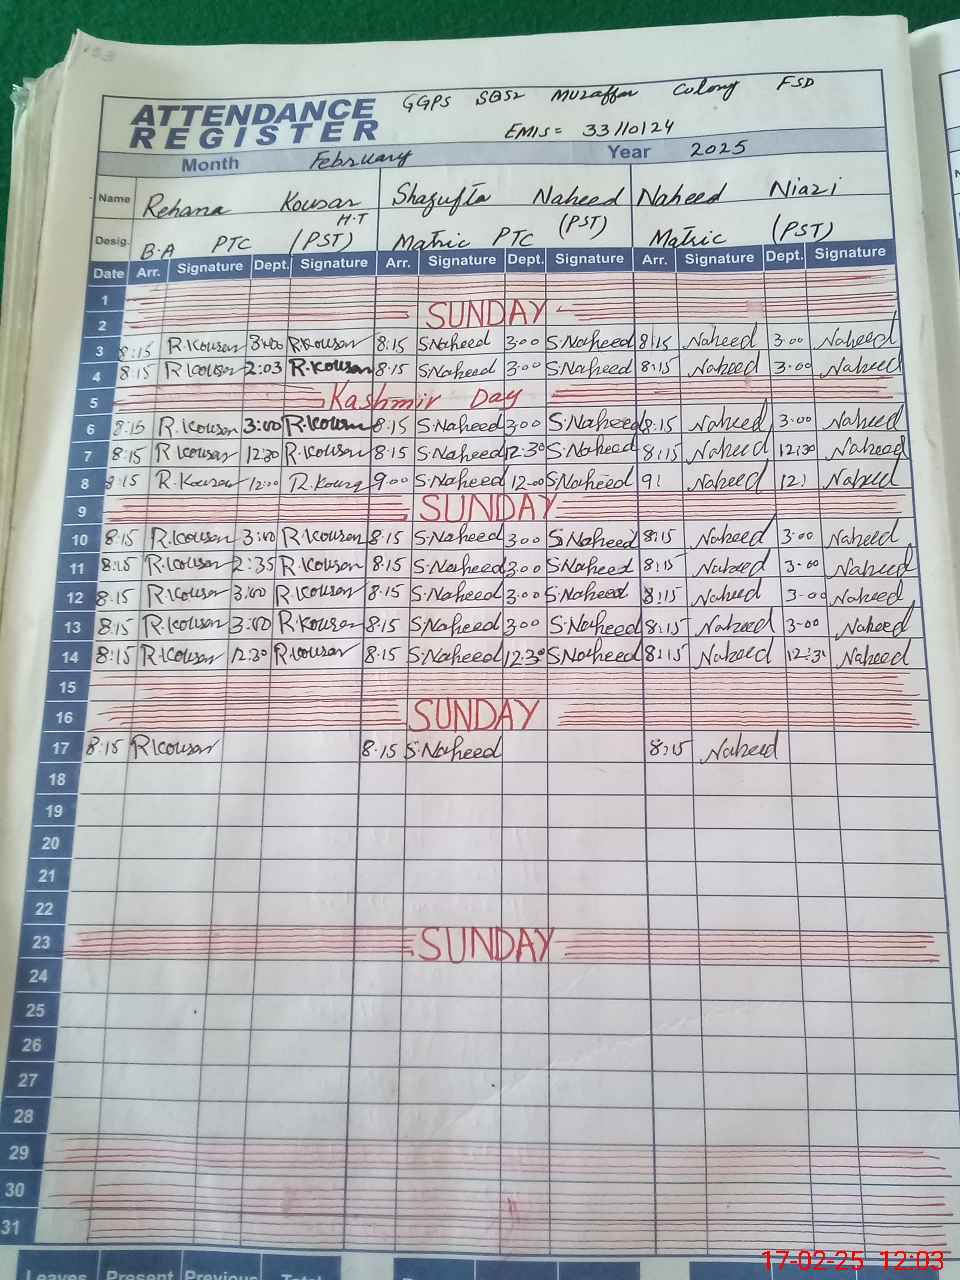 153
GGPS SBS2 Muzaffar Colony FSD
ATTENDANCE
REGISTER
EMIS = 33110124
Month February Year 2025
Name Rehana Kousar Shagufta Naheed Naheed Niazi
H.T
Desig. B.A PTC (PST) Matric PTC (PST) Matric (PST)
Date Arr. Signature Dept. Signature Arr. Signature Dept. Signature Arr. Signature Dept. Signature
1
2 SUNDAY
3 8:15 R.Kousar 3:00 R.Kousar 8:15 S.Naheed 3:00 S.Naheed 8:15 Naheed 3:00 Naheed
4 8:15 R.Kousar 2:03 R.Kousar 8:15 S.Naheed 3:00 S.Naheed 8:15 Naheed 3:00 Naheed
5 Kashmir Day
6 8:15 R.Kousar 3:00 R.Kousar 8:15 S.Naheed 3:00 S.Naheed 8:15 Naheed 3:00 Naheed
7 8:15 R.Kousar 12:30 R.Kousar 8:15 S.Naheed 12:30 S.Naheed 8:15 Naheed 12:30 Naheed
8 8:15 R.Kousar R.Kousar 9:00 S.Naheed 12:00 S.Naheed Naheed Naheed
9 SUNDAY
10 8:15 R.Kousar 3:00 R.Kousar 8:15 S.Naheed 3:00 S.Naheed 8:15 Naheed 3:00 Naheed
11 8:15 R.Kousar 2:35 R.Kousar 8:15 S.Naheed 3:00 S.Naheed 8:15 Naheed 3:00 Naheed
12 8:15 R.Kousar 3:00 R.Kousar 8:15 S.Naheed 3:00 S.Naheed 8:15 Naheed 3:00 Naheed
13 8:15 R.Kousar 3:00 R.Kousar 8:15 S.Naheed 3:00 S.Naheed 8:15 Naheed 3:00 Naheed
14 8:15 R.Kousar 12:30 R.Kousar 8:15 S.Naheed 12:30 S.Naheed 8:15 Naheed 12:30 Naheed
15
16 SUNDAY
17 8:15 R.Kousar 8:15 S.Naheed 8:15 Naheed
18
19
20
21
22
23 SUNDAY
24
25
26
27
28
29
30
31
Leaves Present Previous Total
17-02-25 12:03